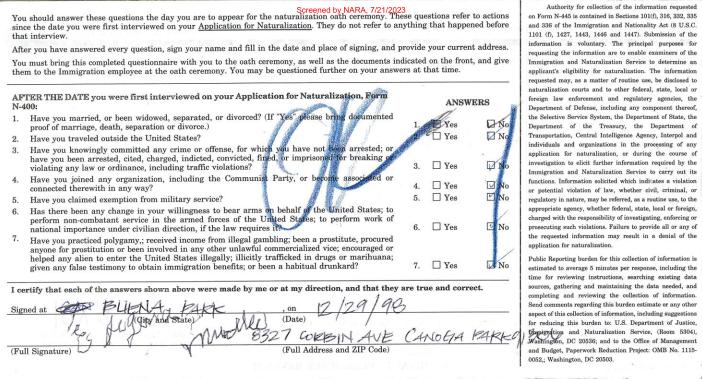 Screened by NARA, 7/21/2023
You should answer these questions the day you are to appear for the naturalization oath ceremony. These questions refer to actions
since the date you were first interviewed on your Application for Naturalization. They do not refer to anything that happened before
that interview.
After you have answered every question, sign your name and fill in the date and place of signing, and provide your current address.
You must bring this completed questionnaire with you to the oath ceremony, as well as the documents indicated on the front, and give
them to the Immigration employee at the oath ceremony. You may be questioned further on your answers at that time.
AFTER THE DATE you were first interviewed on your Application for Naturalization, Form
N-400:
ANSWERS
1. Have you married, or been widowed, separated, or divorced? (If "Yes" please bring documented
proof of marriage, death, separation or divorce.)
1. Yes No
2. Have you traveled outside the United States?
2. Yes No
3. Have you knowingly committed any crime or offense, for which you have not been arrested; or
have you been arrested, cited, charged, indicted, convicted, fined, or imprisoned for breaking or
violating any law or ordinance, including traffic violations?
3. Yes No
4. Have you joined any organization, including the Communist Party, or become associated or
connected therewith in any way?
4. Yes No
5. Have you claimed exemption from military service?
5. Yes No
6. Has there been any change in your willingness to bear arms on behalf of the United States; to
perform non-combatant service in the armed forces of the United States; to perform work of
national importance under civilian direction, if the law requires it?
6. Yes No
7. Have you practiced polygamy,; received income from illegal gambling; been a prostitute, procured
anyone for prostitution or been involved in any other unlawful commercialized vice; encouraged or
helped any alien to enter the United States illegally; illicitly trafficked in drugs or marihuana;
given any false testimony to obtain immigration benefits; or been a habitual drunkard?
7. Yes No
I certify that each of the answers shown above were made by me or at my direction, and that they are true and correct.
Signed at BUENA PARK , on 12/29/98
(City and State) (Date)
8327 CORBIN AVE CANOGA PARK
(Full Signature) (Full Address and ZIP Code)
Authority for collection of the information requested
on Form N-445 is contained in Sections 101(f), 316, 332, 335
and 336 of the Immigration and Nationality Act (8 U.S.C.
1101 (f), 1427, 1443, 1446 and 1447). Submission of the
information is voluntary. The principal purposes for
requesting the information are to enable examiners of the
Immigration and Naturalization Service to determine an
applicant's eligibility for naturalization. The information
requested may, as a matter of routine use, be disclosed to
naturalization courts and to other federal, state, local or
foreign law enforcement and regulatory agencies, the
Department of Defense, including any component thereof,
the Selective Service System, the Department of State, the
Department of the Treasury, the Department of
Transportation, Central Intelligence Agency, Interpol and
individuals and organizations in the processing of any
application for naturalization, or during the course of
investigation to elicit further information required by the
Immigration and Naturalization Service to carry out its
functions. Information solicited which indicates a violation
or potential violation of law, whether civil, criminal, or
regulatory in nature, may be referred, as a routine use, to the
appropriate agency, whether federal, state, local or foreign,
charged with the responsibility of investigating, enforcing or
prosecuting such violations. Failure to provide all or any of
the requested information may result in a denial of the
application for naturalization.
Public Reporting burden for this collection of information is
estimated to average 5 minutes per response, including the
time for reviewing instructions, searching existing data
sources, gathering and maintaining the data needed, and
completing and reviewing the collection of information.
Send comments regarding this burden estimate or any other
aspect of this collection of information, including suggestions
for reducing this burden to: U.S. Department of Justice,
Immigration and Naturalization Service, (Room 5304),
Washington, DC 20536; and to the Office of Management
and Budget, Paperwork Reduction Project: OMB No. 1115-
0052,; Washington, DC 20503.